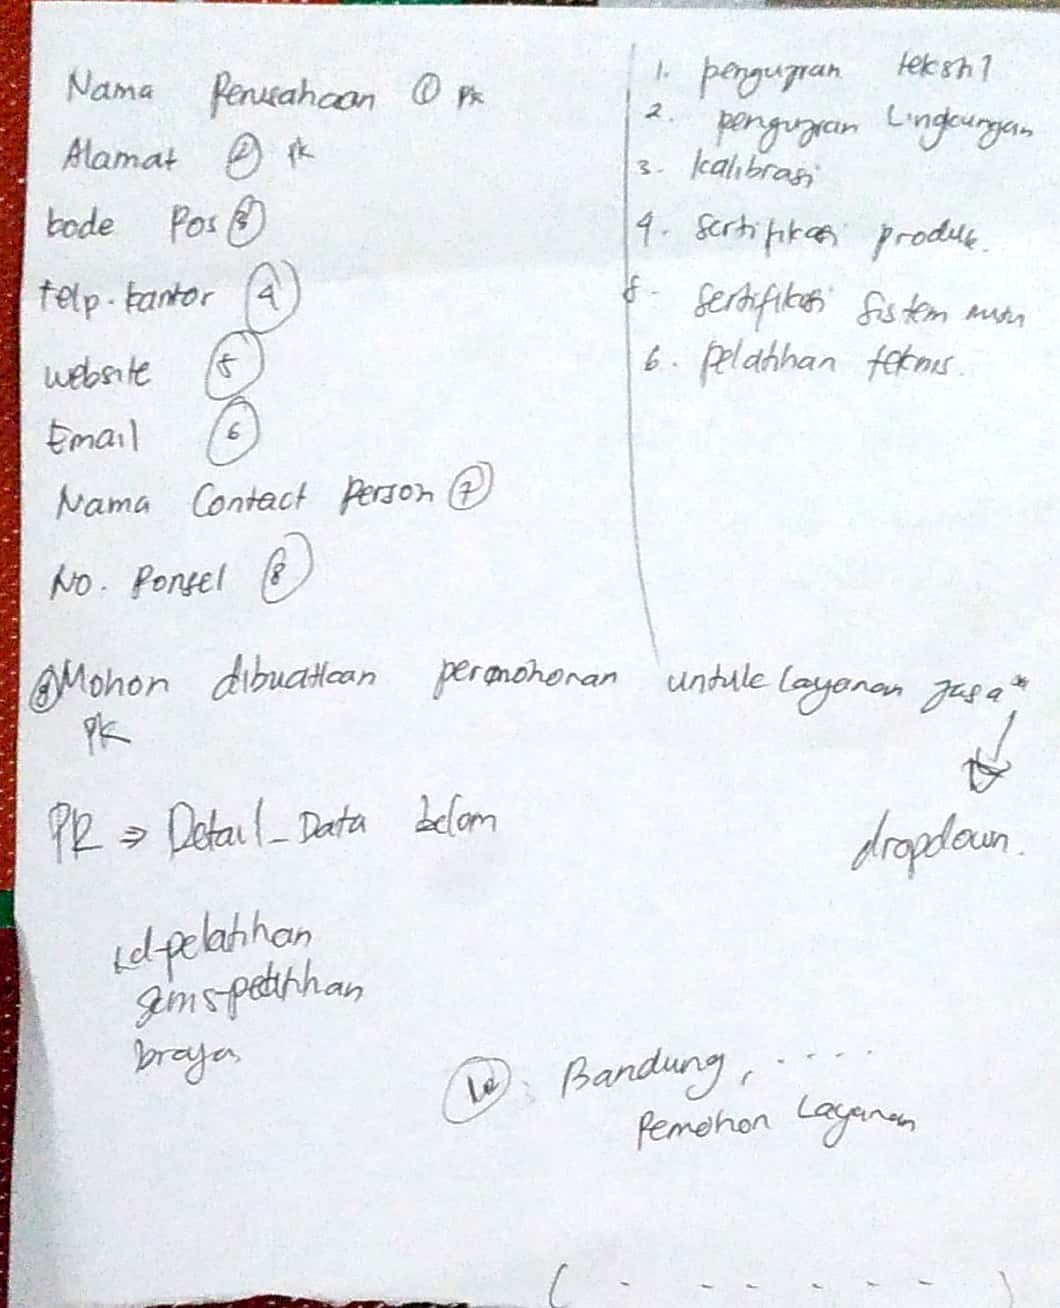 Nama Perusahaan ① PK
Alamat ② PK
kode Pos ③
telp. kantor ④
website ⑤
Email ⑥
Nama Contact Person ⑦
No. Ponsel ⑧
1. pengujian tekstil
2. pengujian Lingkungan
3. kalibrasi
4. Sertifikasi produk.
5. Sertifikasi Sistem mutu
6. pelatihan teknis.
⑨ Mohon dibuatkan permohonan untuk layanan jasa *
PK
dropdown.
PR ⇒ Detail_Data belom
id-pelatihan
jenis-pelatihan
biaya
⑩ : Bandung, ....
Pemohon Layanan
( - - - - - - )